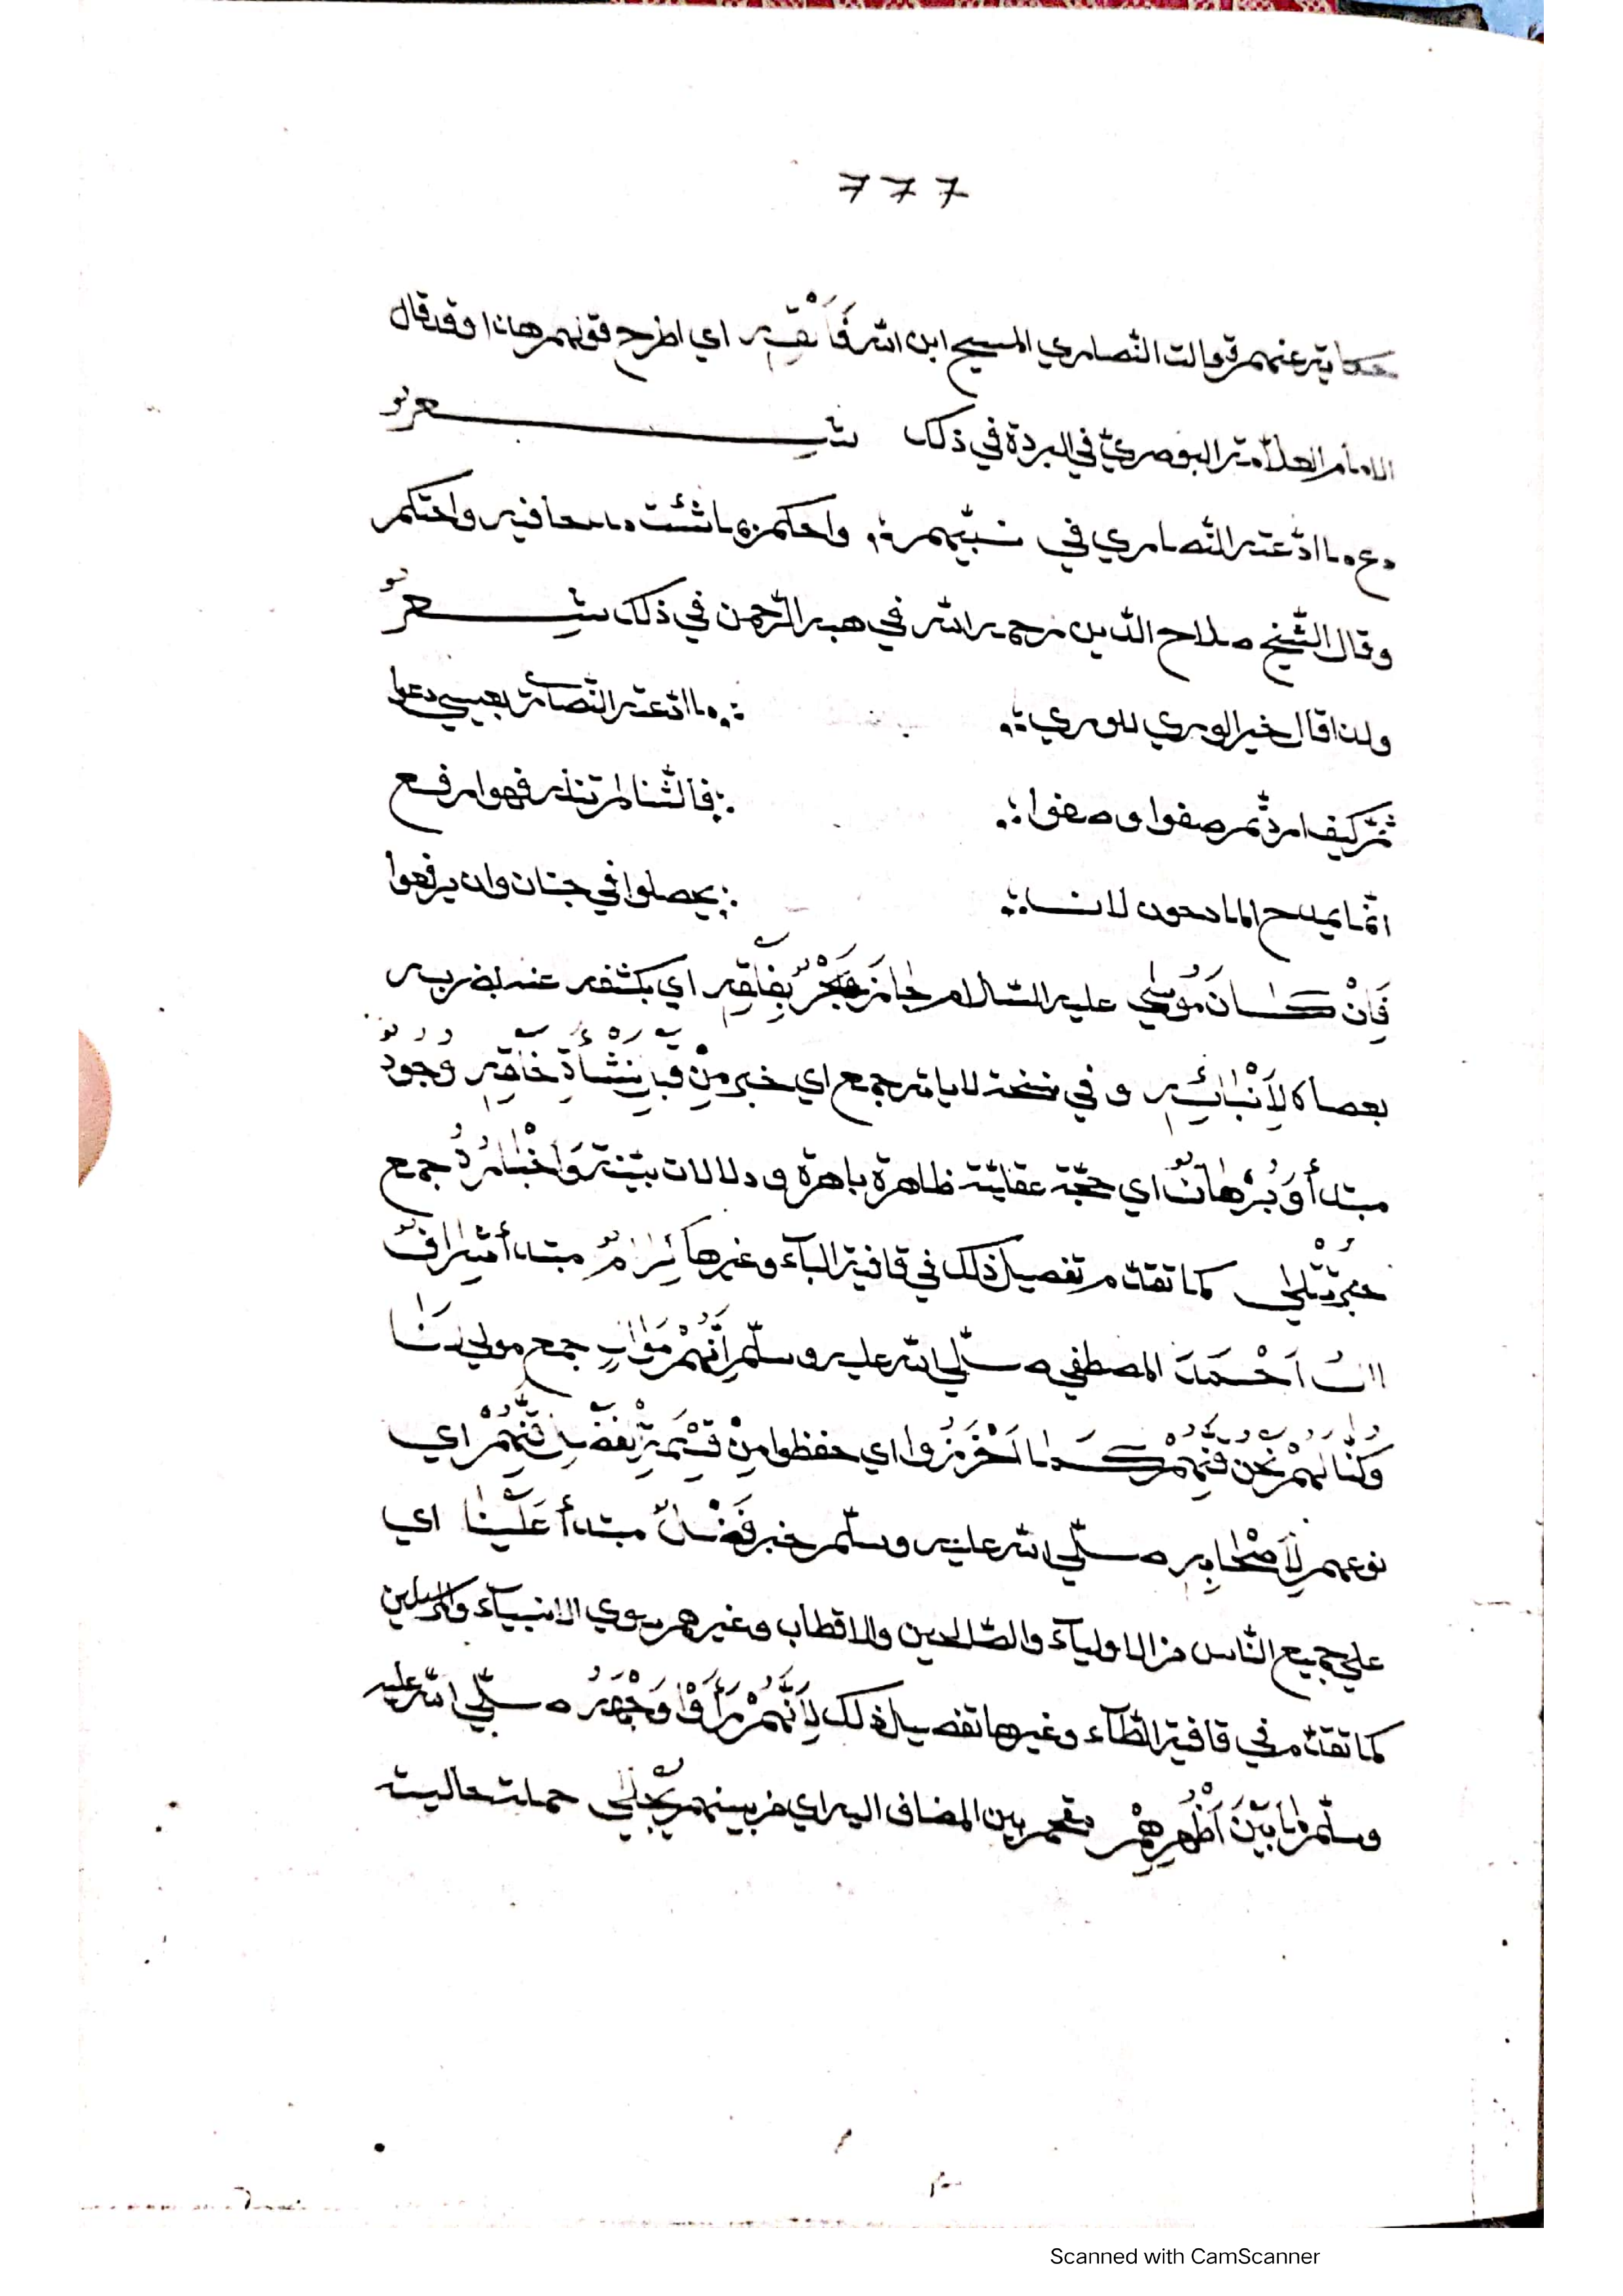 777
حكاية عنهم وقالت النصاري المسيح ابن الله فَأَنْقِهِ اي اطرح قولهم هذا وقد قال
الامام العلّامة البوصريّ في البردة في ذلك شعرٌ
دع ما ادّعته النّصاري في نبيّهم ؞ واحكم بما شئت مدحا فيه واحتكم
وقال الشّيخ صلاح الدّين رحمه الله في هبة الرّحمن في ذلك شعرٌ
ولذا قال خير الوري للوري ؞ ؞ ما ادّعته النّصارة بعيسي دعوا
ثمّ كيف اردتّم صفوا وصفوا ؞ ؞ فالثّنا لم تنله فهو ارفع
انّما يمدح المادحون لان ؞ ؞ يحصلوا في جنان وان يرفعوا
فَإِنْ كَانَ مُوسٰي عليه السّلام حجر اي بكشفه عند ضربه
بعصاه لِأَنْبَائِهِ وفي نسخة لاياته جمع اي خبر مِنْ قَبْلِ نَشْأَةِ خَلْقِهِ وُجُودٌ
مبتدأ وَبُرْهَانٌ اي حجّة عقليّة ظاهرة باهرة ودلالات بيّنة وَأَخْبَارُهُ جمع
خبر تُتْلٰي كما تقدّم تفصيل ذلك في قافية البآء وغيرها كِرَامٌ مبتدأ أَشْرَافٌ
اٰلُ اَحْمَدَ المصطفي صلّي الله عليه وسلّم اَنَّهُمْ مَوَالٍ جمع مولي لَنَا
وَكُنَّا لَهُمْ نَحْنُ قِنُّهُمْ كَمَا اَحْرَزُوا اي حفظوا مِنْ قِسْمَةِ الْفَضْلِ قِنَّهُمْ اي
نوعهم لِأَصْحَابِهِ صلّي الله عليه وسلّم خبر فَضْلٌ مبتدأ عَلَيْنَا اي
علي جميع النّاس من الاوليآء والصّالحين والاقطاب وغيرهم سوي الانبيآء والمرسلين
كما تقدّم في قافية الظّآء وغيرها تفصيل ذلك لِأَنَّهُمْ رَأَوْا وَجْهَهُ صلّي الله عليه
وسلّم مَا بَيْنَ أَظْهُرِهِمْ مقحم بين المضاف اليه اي من بينهم يُجْلٰي جملة حاليّة
Scanned with CamScanner